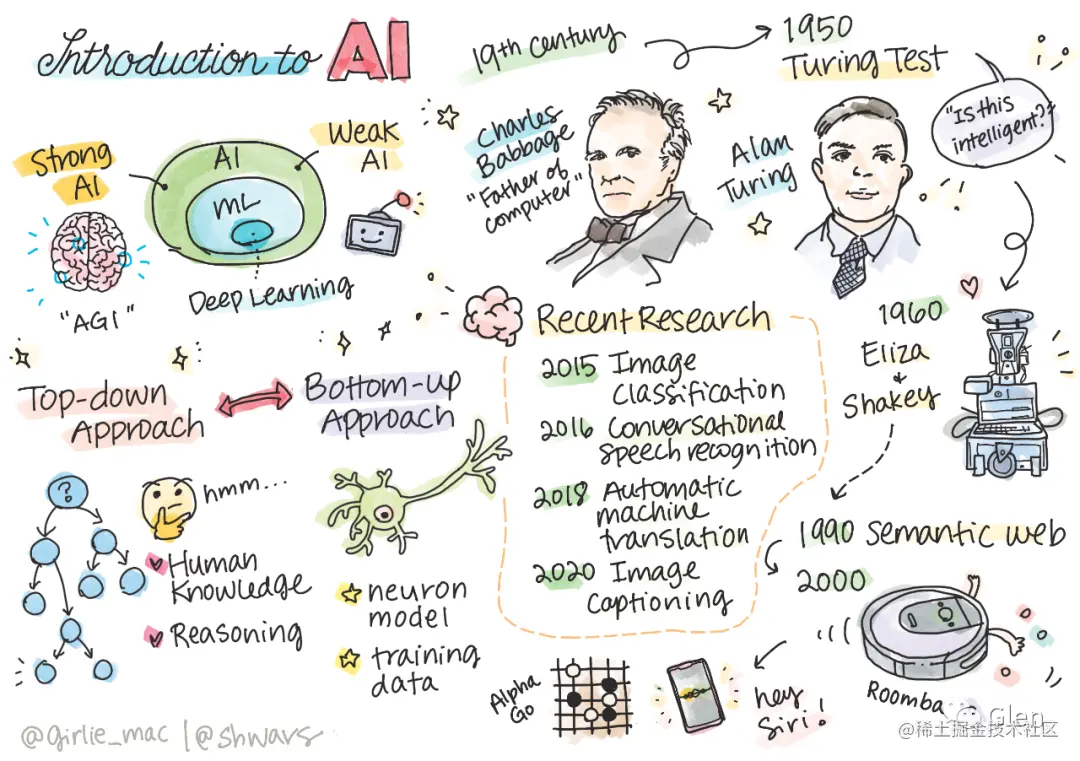 Introduction to AI
Strong
AI
"AGI"
AI
ML
Deep Learning
Weak
AI
19th century
Charles
Babbage
"Father of
computer"
1950
Turing Test
Alan
Turing
"Is this
intelligent?"
1960
Eliza
&
Shakey
1990 Semantic web
2000
Roomba
hey
Siri!
Alpha
Go
Recent Research
2015 Image
classification
2016 Conversational
speech recognition
2018 Automatic
machine
translation
2020 Image
captioning
Top-down
Approach
Bottom-up
Approach
?
hmm...
Human
Knowledge
Reasoning
neuron
model
training
data
@girlie_mac | @shwars
Glen
@稀土掘金技术社区